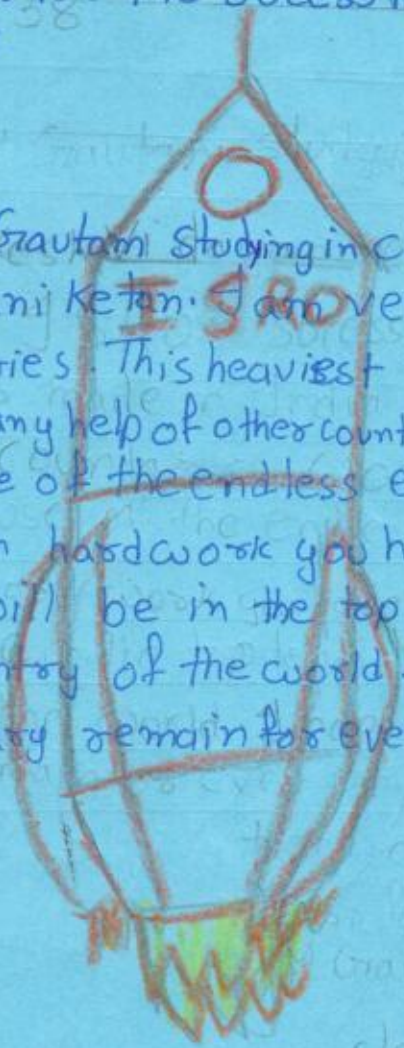 Gautam studying in
niketan. I am ve
ISRO
ries. This heaviest
any help of other count
e of the endless e
h hardwork you h
will be in the top
ntry of the world
ry remain for eve